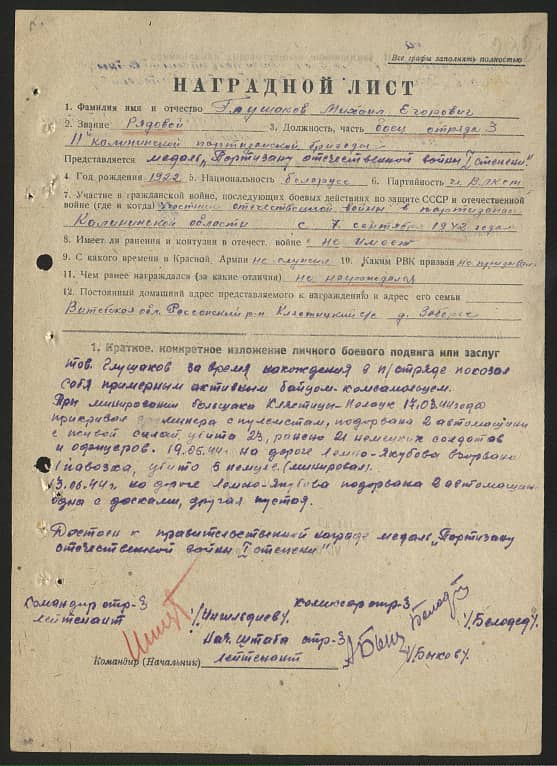 Все графы заполнять полностью
НАГРАДНОЙ ЛИСТ
1. Фамилия имя и отчество Глушаков Михаил Егорович
2. Звание Рядовой 3. Должность, часть боец отряда 3
11 Калининской партизанской бригады
Представляется медаль „Партизану отечественной войны I степени"
4. Год рождения 1922 5. Национальность белорус 6. Партийность чл. ВЛКСМ
7. Участие в гражданской войне, последующих боевых действиях по защите СССР и отечественной
войне (где и когда) участник отечественной войны в партизанах
Калининской области с 7 сентября 1942 года
8. Имеет ли ранения и контузии в отечест. войне не имеет
9. С какого времени в Красной Армии не служил 10. Каким РВК призван не призывался
11. Чем ранее награждался (за какие отличия) не награждался
12. Постоянный домашний адрес представляемого к награждению и адрес его семьи
Витебская обл. Россонский р-н Клястицкий с/с д.
1. Краткое, конкретное изложение личного боевого подвига или заслуг
тов. Глушаков за время нахождения в п/отряде показал
себя примерным активным байцом-комсамольцем.
При минировании большака Клястицы-Полоцк 17.03.44 года
прикривая минера с пулеметам, подорвана 2 автомашины
с живой силой, убита 23, ранено 21 немецких солдатов
и офицеров. 19.06.44г. на дороге Лемно-Якубова взорвана
1 павозка, убито 3 немцев. (минировал).
13.06.44г. на дороге Лемно-Якубова подорвана 2 автомашин
одна с досками, другая пустая.
Достоен к правительственной награде медаль „Партизану
отечественной войны I степени"
Командир отр-3 комиссар отр-3
лейтенант /Белодед/
Нач. штаба отр-3
Командир (Начальник) лейтенант /Быков/